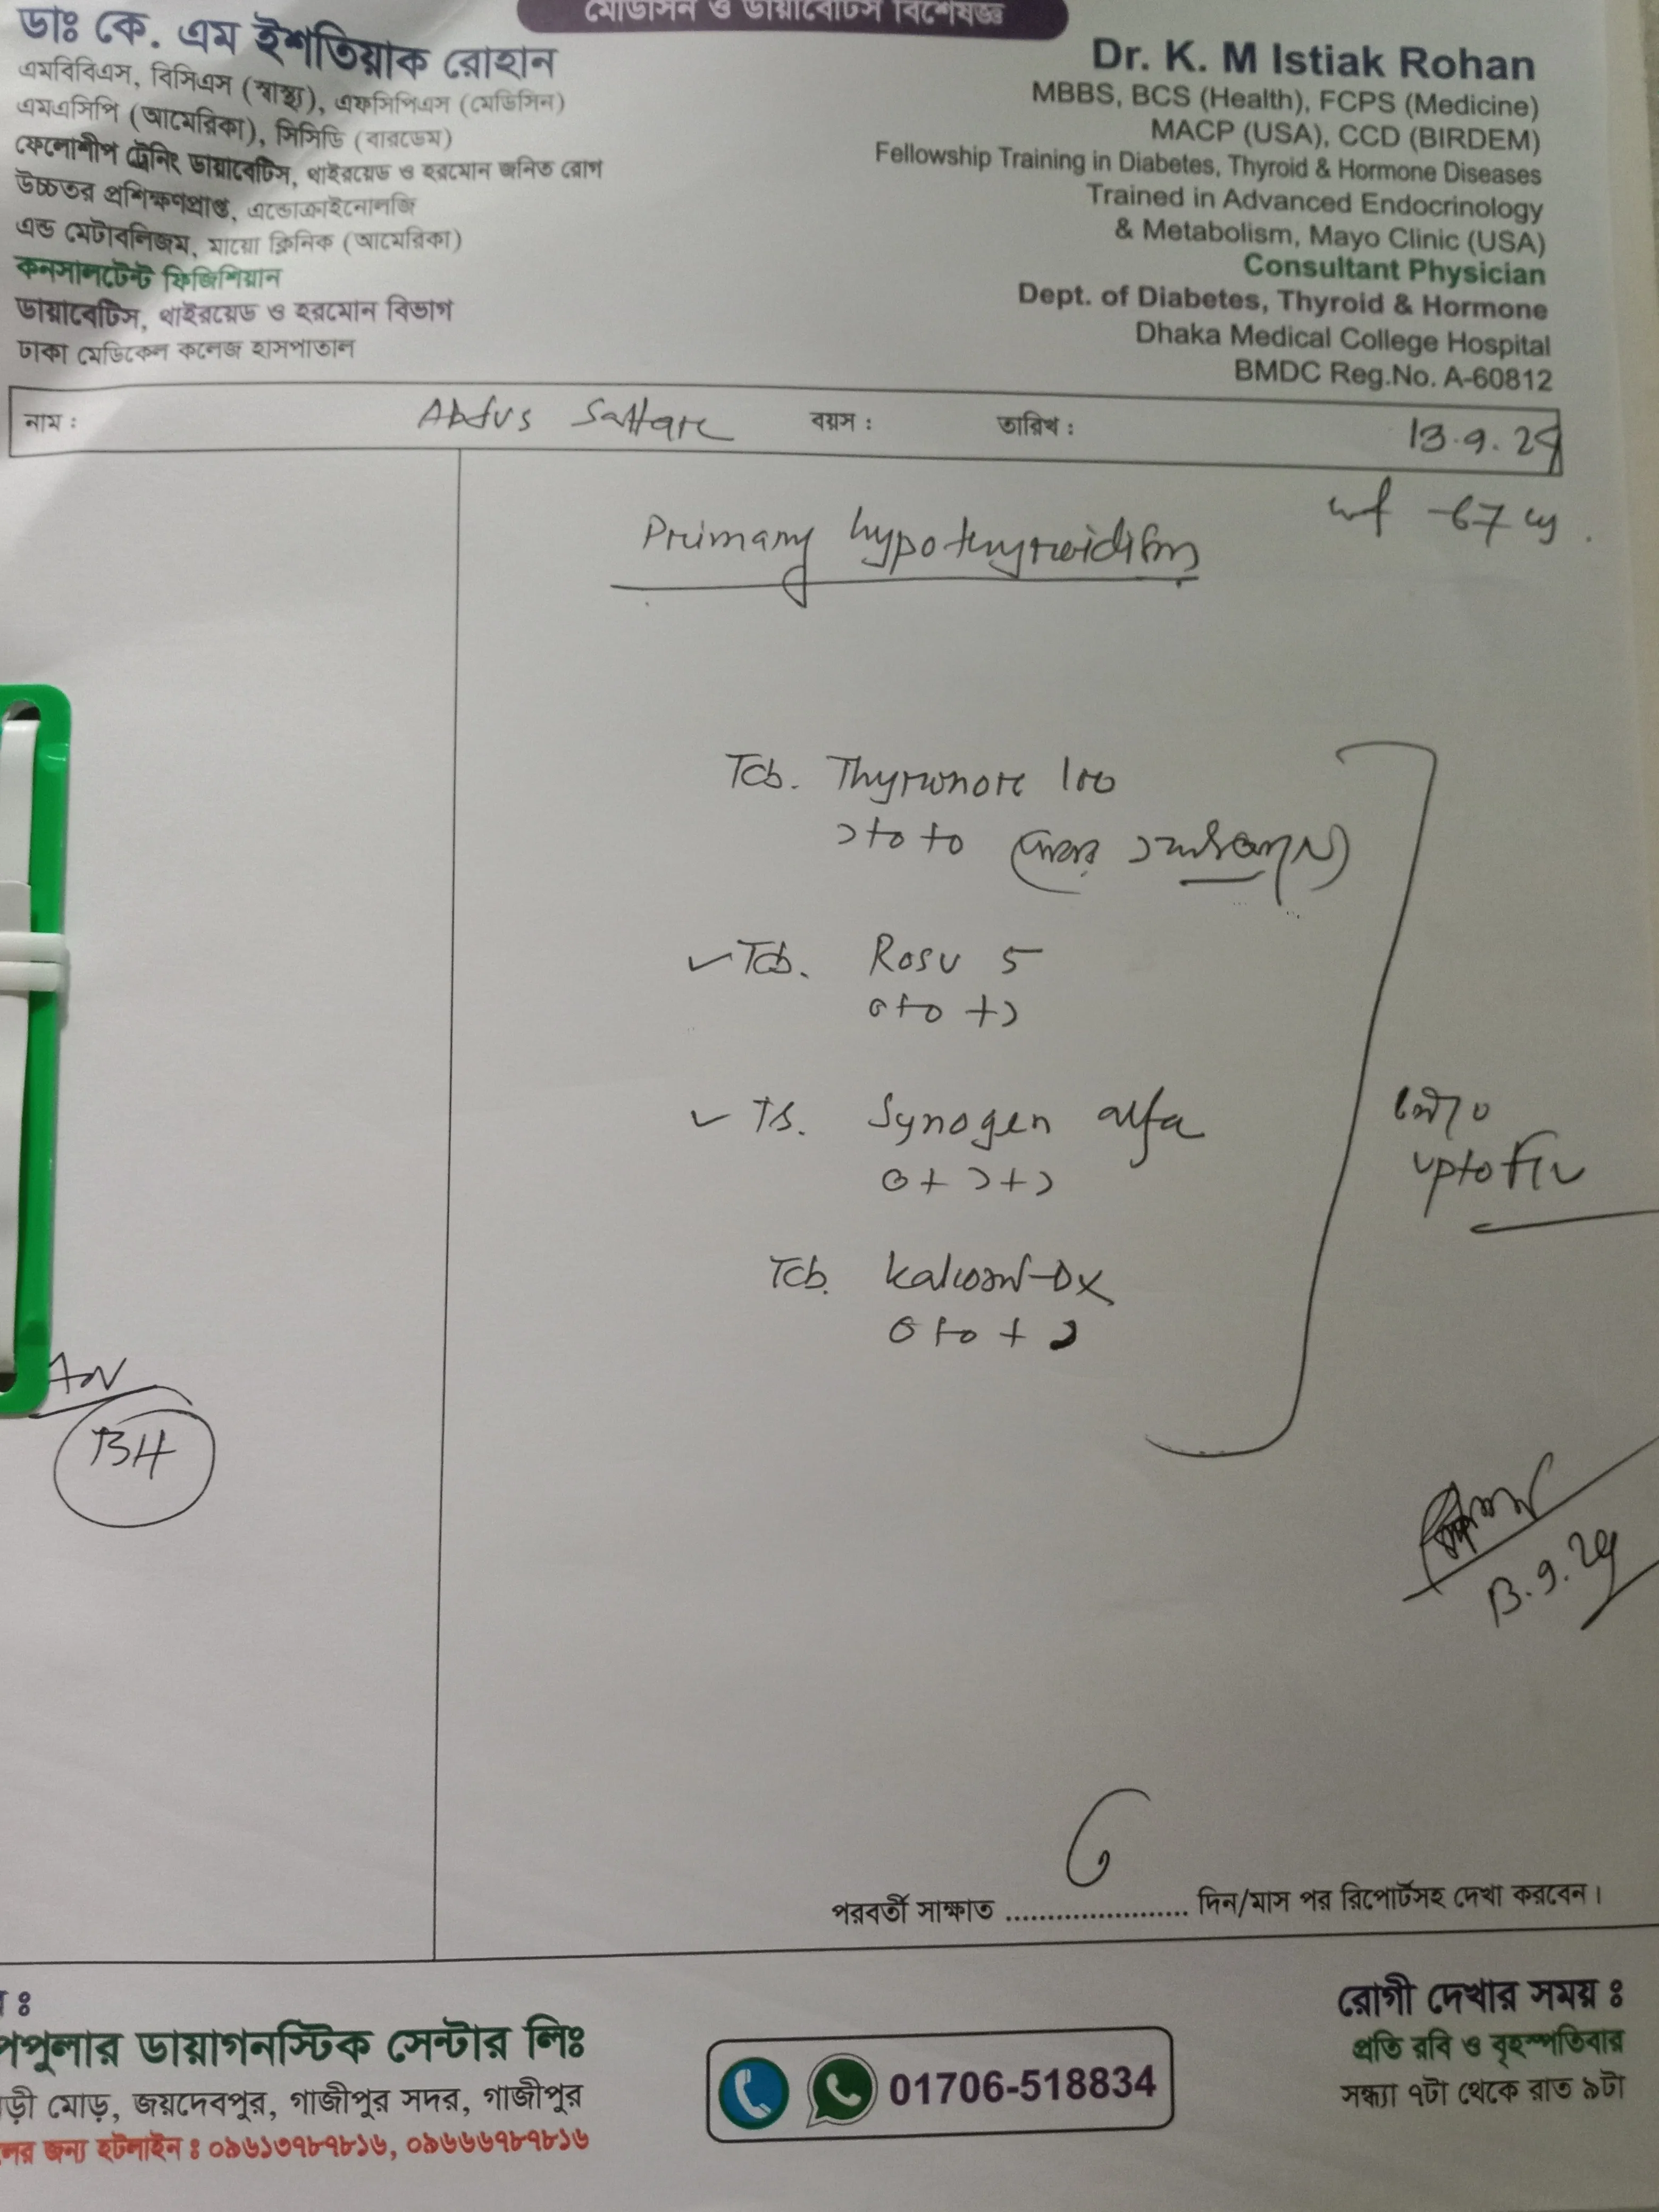 মেডিসিন ও ডায়াবেটিস বিশেষজ্ঞ
ডাঃ কে. এম ইশতিয়াক রোহান
এমবিবিএস, বিসিএস (স্বাস্থ্য), এফসিপিএস (মেডিসিন)
এমএসিপি (আমেরিকা), সিসিডি (বারডেম)
ফেলোশীপ ট্রেনিং ডায়াবেটিস, থাইরয়েড ও হরমোন জনিত রোগ
উচ্চতর প্রশিক্ষণপ্রাপ্ত, এন্ডোক্রাইনোলজি
এন্ড মেটাবলিজম, মায়ো ক্লিনিক (আমেরিকা)
কনসালটেন্ট ফিজিশিয়ান
ডায়াবেটিস, থাইরয়েড ও হরমোন বিভাগ
ঢাকা মেডিকেল কলেজ হাসপাতাল
Dr. K. M Istiak Rohan
MBBS, BCS (Health), FCPS (Medicine)
MACP (USA), CCD (BIRDEM)
Fellowship Training in Diabetes, Thyroid & Hormone Diseases
Trained in Advanced Endocrinology
& Metabolism, Mayo Clinic (USA)
Consultant Physician
Dept. of Diabetes, Thyroid & Hormone
Dhaka Medical College Hospital
BMDC Reg.No. A-60812
নাম : Abdus Sattar বয়স : তারিখ : 13.9.24
wt -67 kg.
Primary hypothyroidism
Tab. Thyronor 100
১+০+০
Tab. Rosu 5
০+০+১
Tab. Synogen alfa
০+১+১
Tab. -DX
০+০+১
upto
BH
13.9.24
পরবর্তী সাক্ষাত ...................... দিন/মাস পর রিপোর্টসহ দেখা করবেন।
পপুলার ডায়াগনস্টিক সেন্টার লিঃ
মোড়, জয়দেবপুর, গাজীপুর সদর, গাজীপুর
জন্য হটলাইন : ০৯৬১৩৭৮৭৮১৬, ০৯৬৬৬৭৮৭৮১৬
01706-518834
রোগী দেখার সময় :
প্রতি রবি ও বৃহস্পতিবার
সন্ধ্যা ৭টা থেকে রাত ৯টা